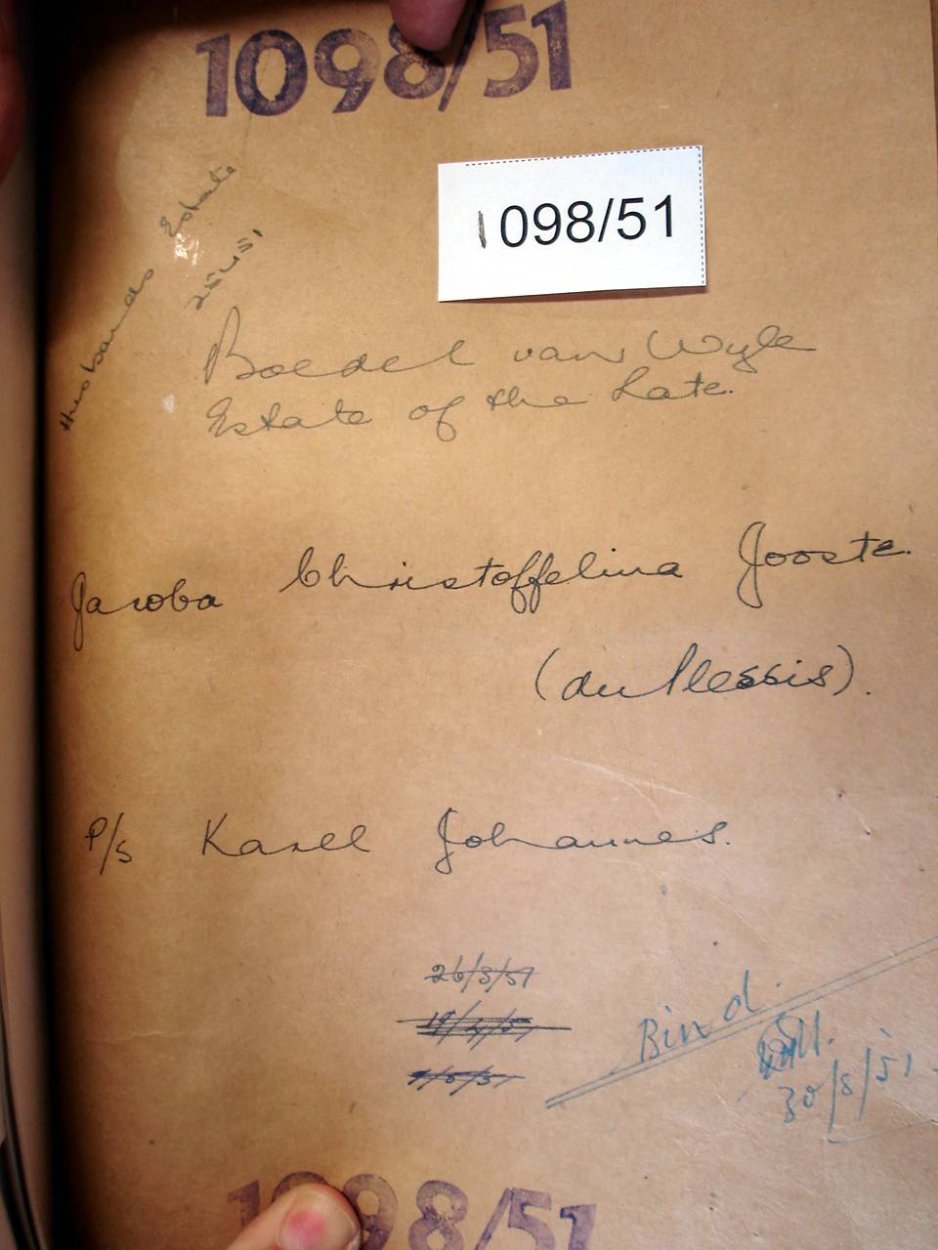 1098/51
1098/51
Husbands Estate
Boedel van Wyle
Estate of the Late.
Jacoba Christoffelina Jooste.
(du Plessis).
P/S Karel Johannes.
26/3/51
19/4/51
Bind.
30/8/51
1098/51